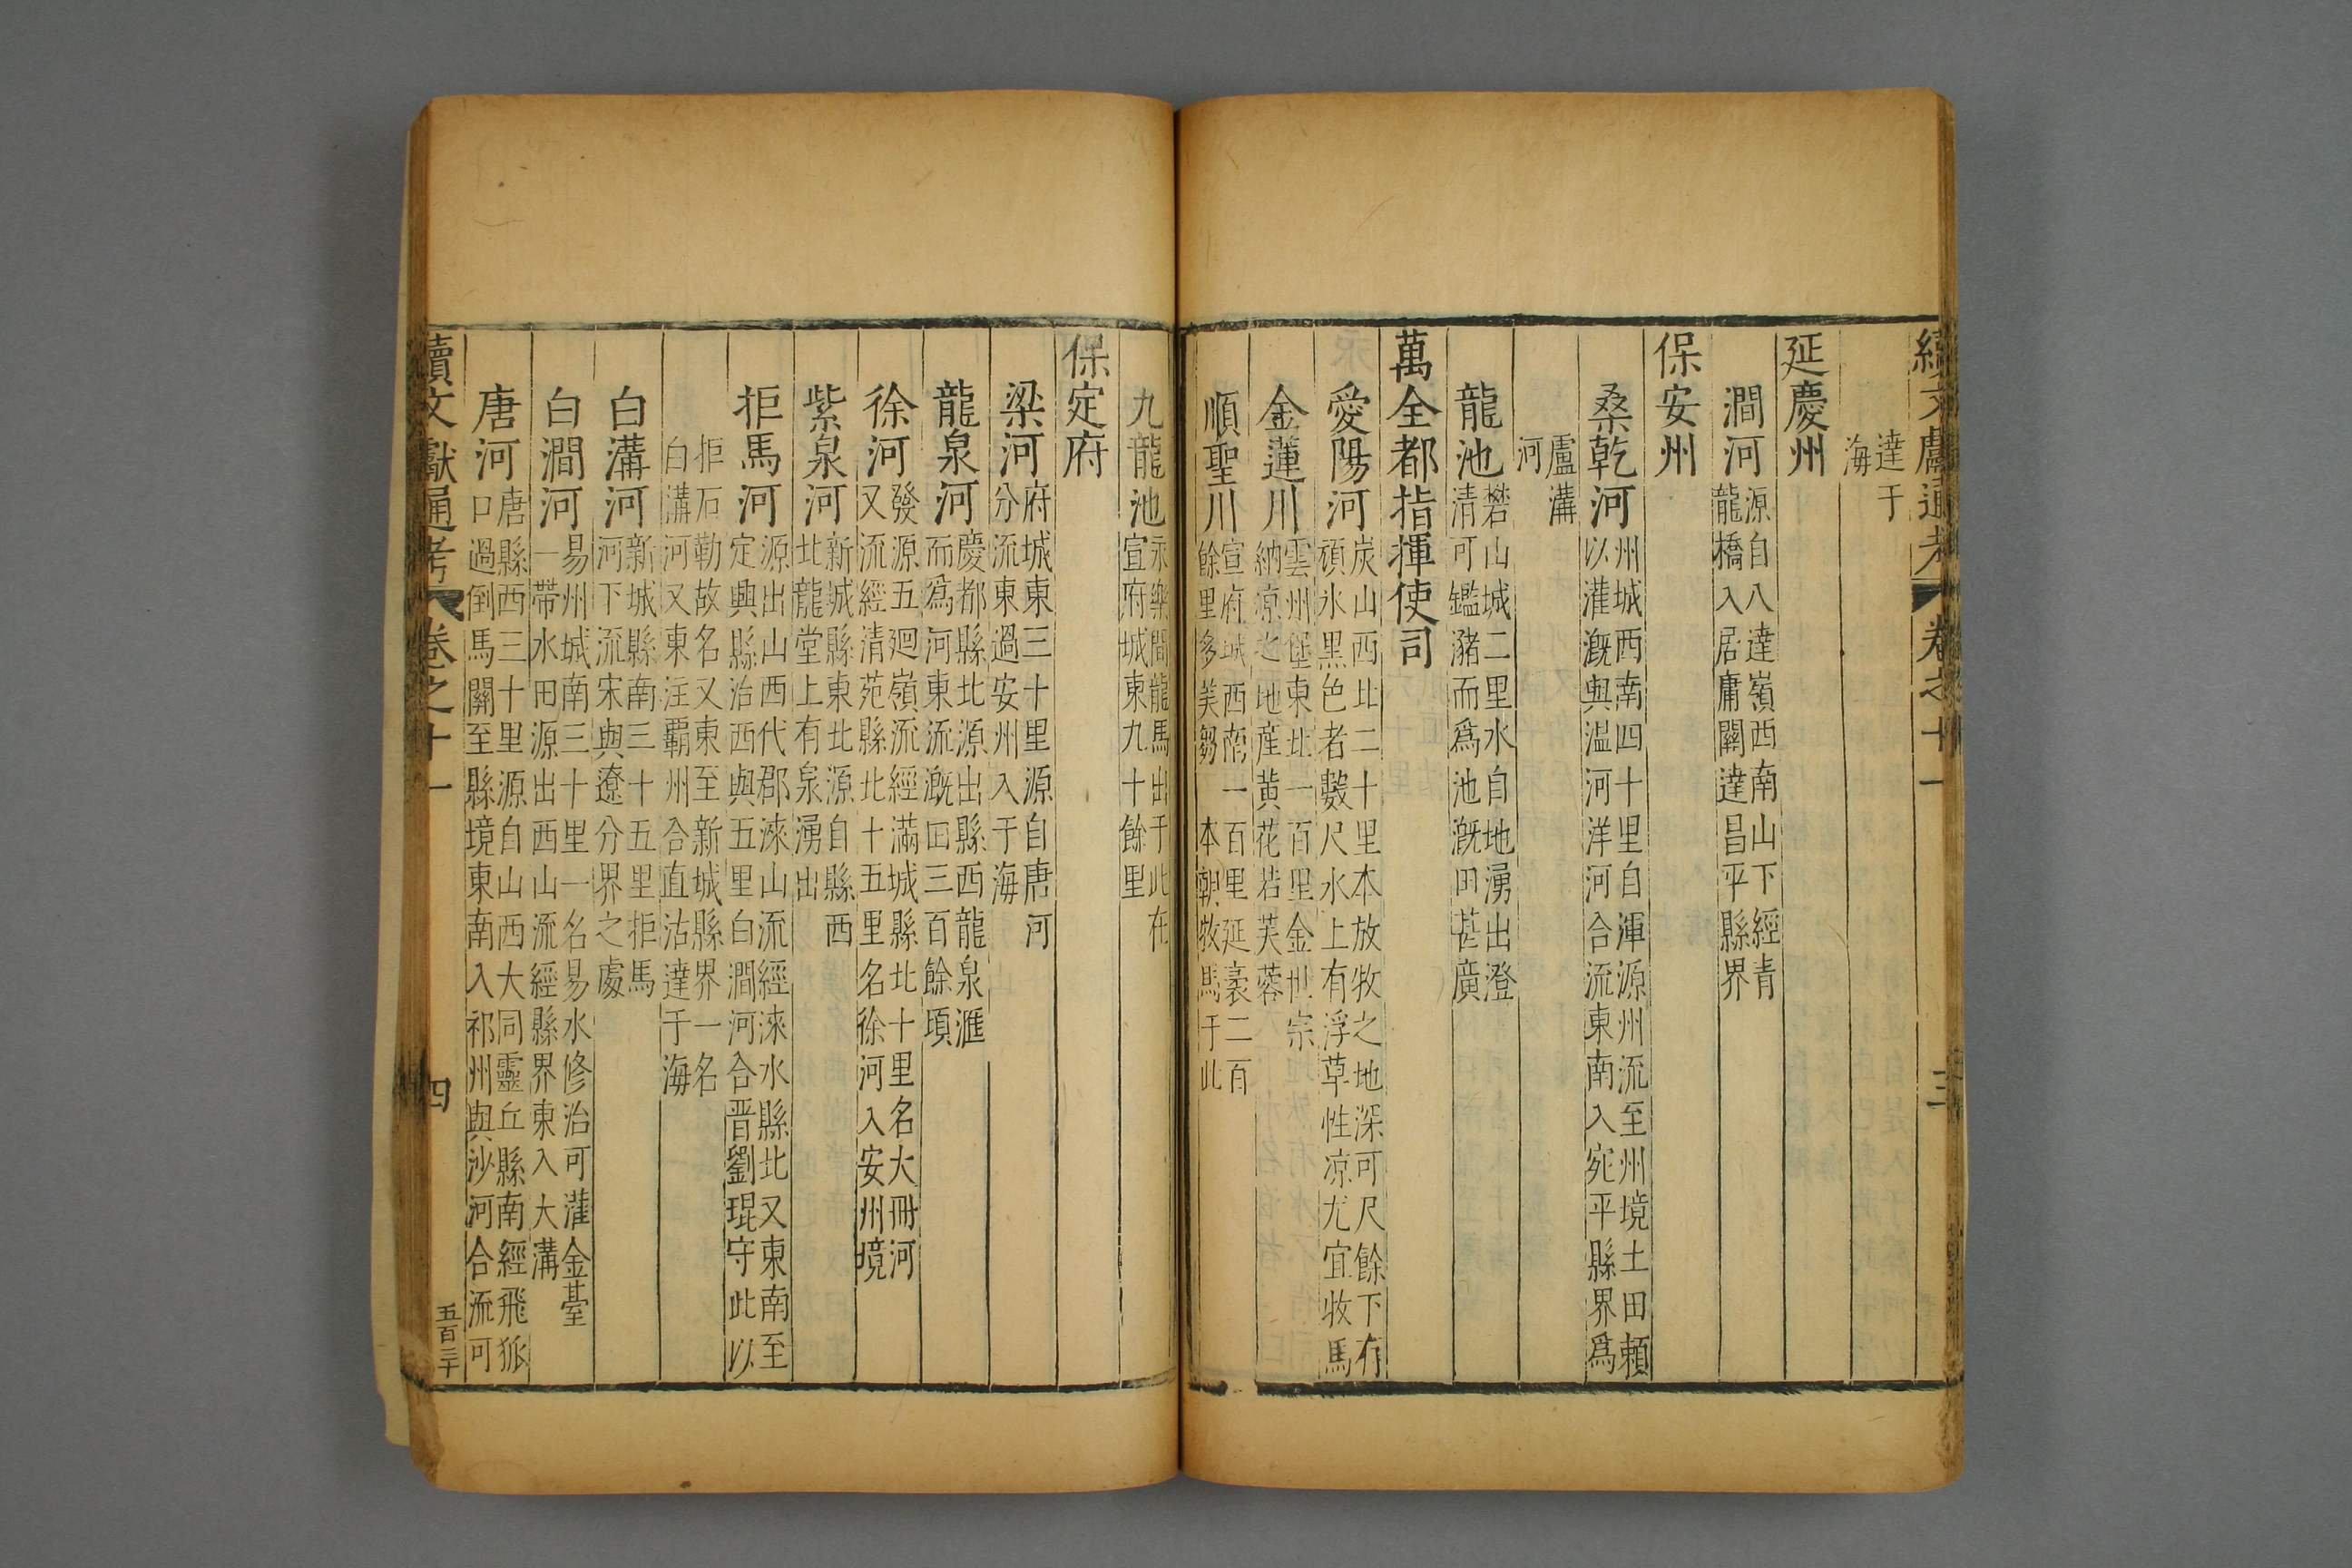 續文獻通考 卷之十一 三
達于
海
延慶州
澗河 源自八達嶺西南山下經青
龍橋入居庸關達昌平縣界
保安州
桑乾河 州城西南四十里自渾源州流至州境土田賴
以灌溉與溫河洋河合流東南入宛平縣界爲
盧溝
河
龍池 礬山城二里水自地湧出澄
清可鑑瀦而爲池溉田甚廣
萬全都指揮使司
愛陽河 炭山西北二十里本放牧之地深可尺餘下有
頑氷黑色者數尺水上有浮草性凉尤宜牧馬
金蓮川 雲州堡東北一百里金世宗
納凉之地産黄花若芙蓉
順聖川 宣府城西南一百里延袤二百
餘里多美芻 本朝牧馬于此
九龍池 永樂間龍馬出于此在
宣府城東九十餘里
保定府
梁河 府城東三十里源自唐河
分流東過安州入于海
龍泉河 慶都縣北源出縣西龍泉滙
而爲河東流溉田三百餘頃
徐河 發源五廻嶺流經滿城縣北十里名大冊河
又流經清苑縣北十五里名徐河入安州境
紫泉河 新城縣東北源自縣西
北龍堂上有泉湧出
拒馬河 源出山西代郡淶山流經淶水縣北又東南至
定興縣治西與五里白澗河合晋劉琨守此以
拒石勒故名又東至新城縣界一名
白溝河又東注霸州合直沽達于海
白溝河 新城縣南三十五里拒馬
河下流宋與遼分界之處
白澗河 易州城南三十里一名易水修治可灌金臺
一帶水田源出西山流經縣界東入大溝
唐河 唐縣西三十里源自山西大同靈丘縣南經飛狐
口過倒馬關至縣境東南入祁州與沙河合流可
續文獻通考 卷之十一 四
五百三十